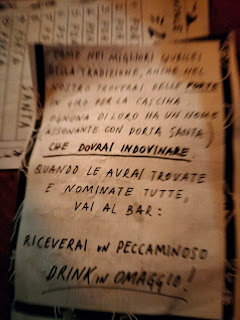 COME NEI MIGLIORI GIUBILEI
DELLA TRADIZIONE, ANCHE NEL
NOSTRO TROVERAI DELLE PORTE
IN GIRO PER LA CASCINA
OGNUNA DI LORO HA UN NOME
ASSONANTE CON PORTA SANTA
CHE DOVRAI INDOVINARE.
QUANDO LE AVRAI TROVATE
E NOMINATE TUTTE,
VAI AL BAR:
RICEVERAI UN PECCAMINOSO
DRINK IN OMAGGIO!
SANTA